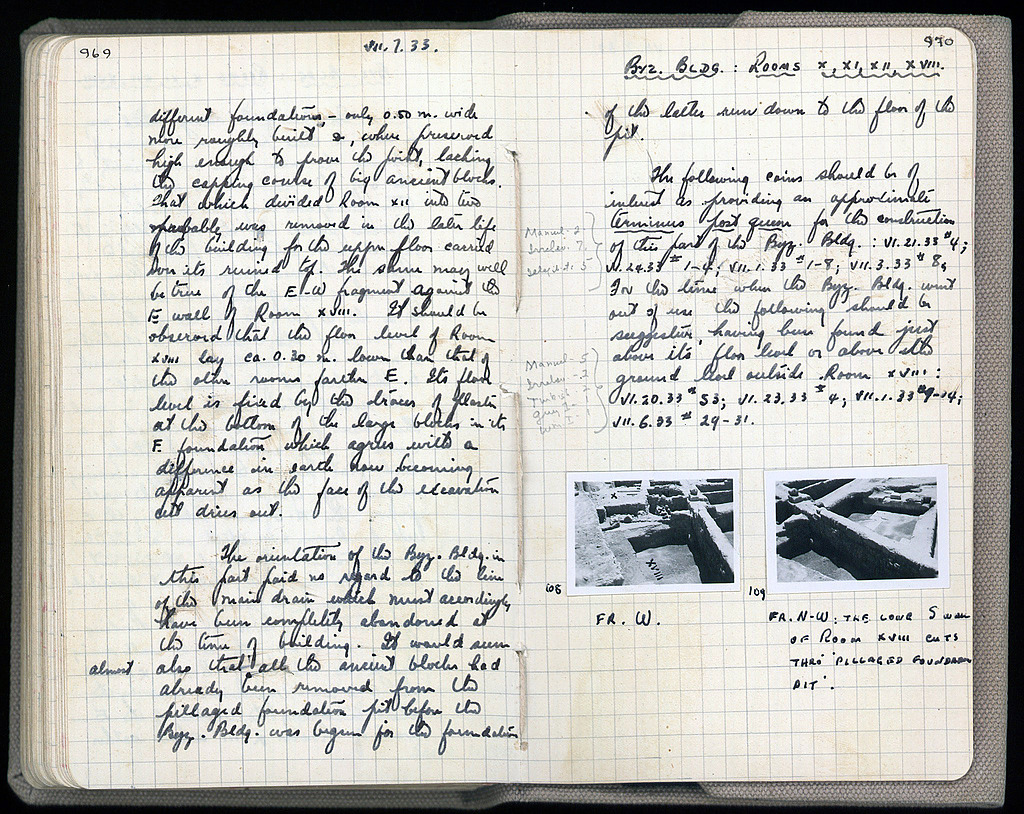 969
VII.7.33.
different foundations - only 0.50 m. wide
more roughly built &, where preserved
high enough to prove the point, lacking
the capping course of big ancient blocks.
That which divided Room XII into two
probably was removed in the later life
of the building for the upper floor carried
over its ruined top. The same may well
be true of the E-W fragment against the
E wall of Room XVIII. It should be
observed that the floor level of Room
XVIII lay ca. 0.30 m. lower than that of
the other rooms farther E. Its floor
level is fixed by the traces of plaster
at the bottom of the large blocks in its
E foundation which agrees with a
difference in earth now becoming
apparent as the face of the excavation
cut dries out.
The orientation of the Byz. Bldg. in
this part paid no regard to the line
of the main drain which must accordingly
have been completely abandoned at
the time of building. It would seem
also that almost all the ancient blocks had
already been removed from the
pillaged foundation pit before the
Byz. Bldg. was begun for the foundations
970
Byz. Bldg.: Rooms X, XI, XII, XVIII.
of the latter run down to the floor of the
pit.
The following coins should be of
interest as providing an approximate
terminus post quem for the construction
of this part of the Byz. Bldg.: VI.21.33 #4;
VI.24.33 #1-4; VII.1.33 #1-8; VII.3.33 #8,
For the time when the Byz. Bldg. went
out of use the following should be
suggestive, having been found just
above its floor level or above the
ground level outside Room XVIII:
VI.20.33 #53; VI.23.33 #4; VII.1.33 #9-14;
VII.6.33 #29-31.
Manuel-2
7
5
Manuel-5
X
XVIII
108
FR. W.
109
FR. N-W: THE LONG S WALL
OF ROOM XVIII CUTS
THRO' PILLAGED FOUNDATION
PIT.